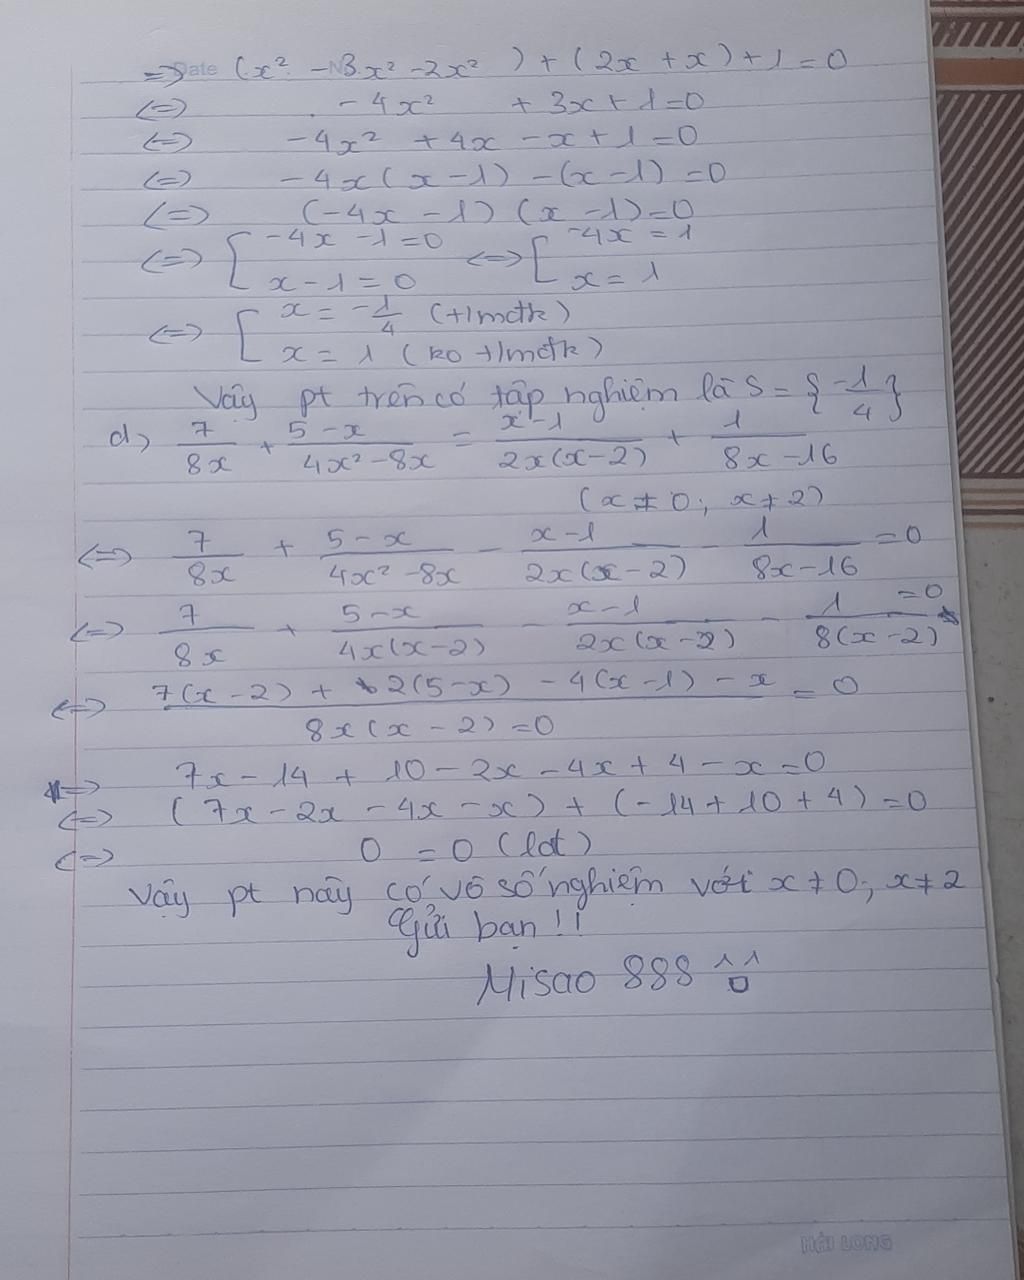 => Date No. (x² - 3x² - 2x²) + (2x + x) + 1 = 0
<=> - 4x² + 3x + 1 = 0
<=> - 4x² + 4x - x + 1 = 0
<=> - 4x (x - 1) - (x - 1) = 0
<=> (-4x - 1) (x - 1) = 0
<=> [ -4x - 1 = 0 <=> [ -4x = 1
x - 1 = 0 x = 1
<=> [ x = -1/4 (t/mđk)
x = 1 (ko t/mđk)
Vây pt trên có tâp nghiệm là S = { -1/4 }
d) 7/8x + (5 - x)/(4x² - 8x) = (x - 1)/(2x(x - 2)) + 1/(8x - 16)
(x ≠ 0; x ≠ 2)
<=> 7/8x + (5 - x)/(4x² - 8x) - (x - 1)/(2x(x - 2)) - 1/(8x - 16) = 0
<=> 7/8x + (5 - x)/(4x(x - 2)) - (x - 1)/(2x(x - 2)) - 1/(8(x - 2)) = 0
<=> (7(x - 2) + 2(5 - x) - 4(x - 1) - x)/(8x(x - 2) = 0) = 0
=> 7x - 14 + 10 - 2x - 4x + 4 - x = 0
<=> (7x - 2x - 4x - x) + (-14 + 10 + 4) = 0
<=> 0 = 0 (lđt)
Vậy pt này có vô số nghiệm với x ≠ 0; x ≠ 2
Gửi bạn !!
Misao 888
HẢI LONG